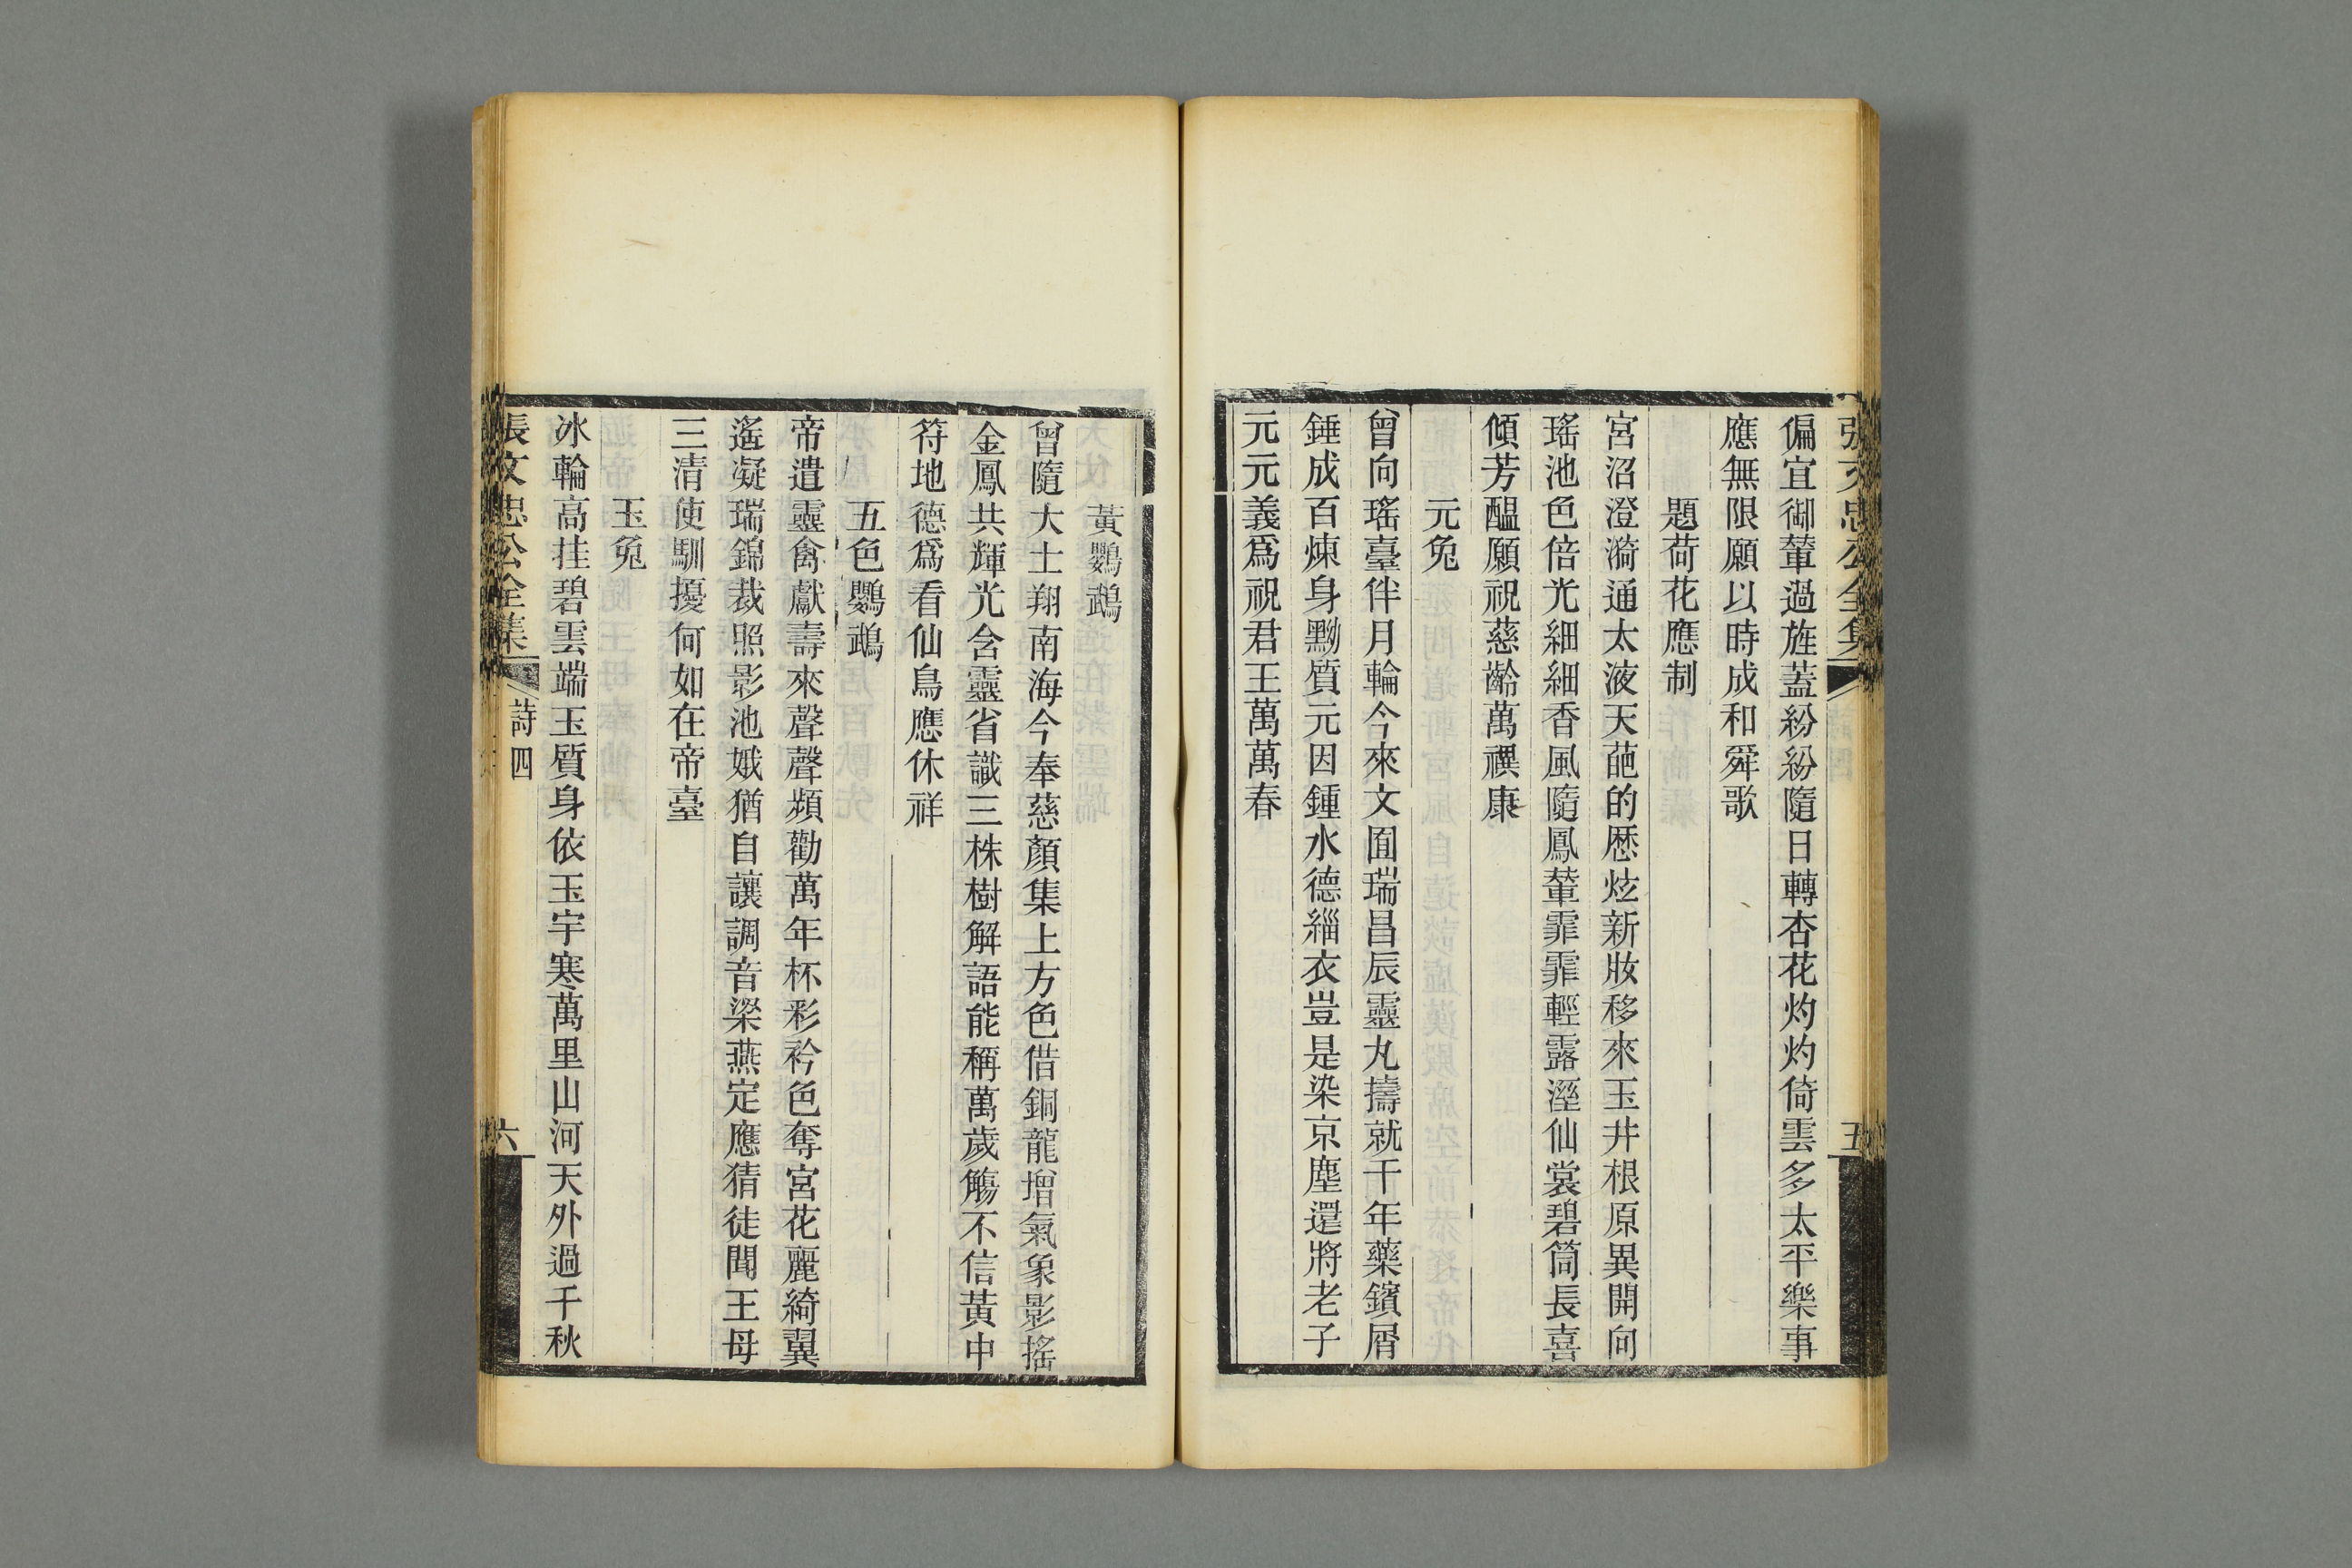 張文忠公全集
五
偏宜御輦過旌蓋紛紛隨日轉杏花灼灼倚雲多太平樂事
應無限願以時成和舜歌
題荷花應制
宮沼澄漪通太液天葩的歷炫新妝移來玉井根原異開向
瑤池色倍光細細香風隨鳳輦霏霏輕露溼仙裳碧筒長喜
傾芳醖願祝慈齡萬禩康
元兔
曾向瑤臺伴月輪今來文囿瑞昌辰靈丸擣就千年藥鑌屑
錘成百煉身黝質元因鍾水德緇衣豈是染京塵還將老子
元元義爲祝君王萬萬春
黃鸚鵡
曾隨大士翔南海今奉慈顏集上方色借銅龍增氣象影搖
金鳳共輝光含靈省識三株樹解語能稱萬歲觴不信黃中
符地德爲看仙鳥應休祥
五色鸚鵡
帝遣靈禽獻壽來聲聲頻勸萬年杯彩衿色奪宮花麗綺翼
遙凝瑞錦裁照影池娥猶自讓調音梁燕定應猜徒聞王母
三清使馴擾何如在帝臺
玉兔
冰輪高挂碧雲端玉質身依玉宇寒萬里山河天外過千秋
張文忠公全集
詩四
六